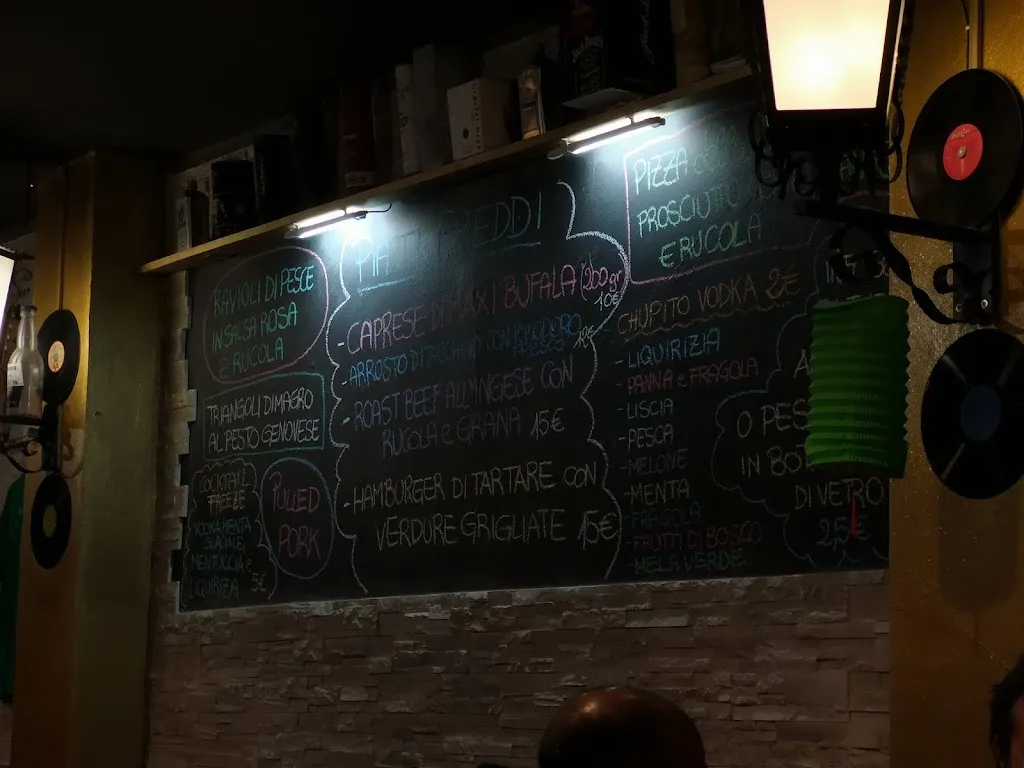 RAVIOLI DI PESCE
IN SALSA ROSA
E RUCOLA
TRIANGOLI DI MAGRO
AL PESTO GENOVESE
COCKTAIL
FREEZE
VODKA MENTA
MENTUCCIA e
LIQUIRIZIA 5€
PULLED
PORK
PIATTI FREDDI
-CAPRESE DI MAXI BUFALA (200 gr)
10€
-ARROSTO DI TACCHINO CON POMODORO
FRESCO
-ROAST BEEF ALL'INGESE CON
RUCOLA e GRANA 15€
-HAMBURGER DI TARTARE CON
VERDURE GRIGLIATE 15€
PIZZA
PROSCIUTTO
E RUCOLA
CHUPITO VODKA 2€
-LIQUIRIZIA
-PANNA e FRAGOLA
-LISCIA
-PESCA
-MELONE
-MENTA
-FRAGOLA
-FRUTTI DI BOSCO
-MELA VERDE
O PES
IN BO
DI VETRO
2,5€